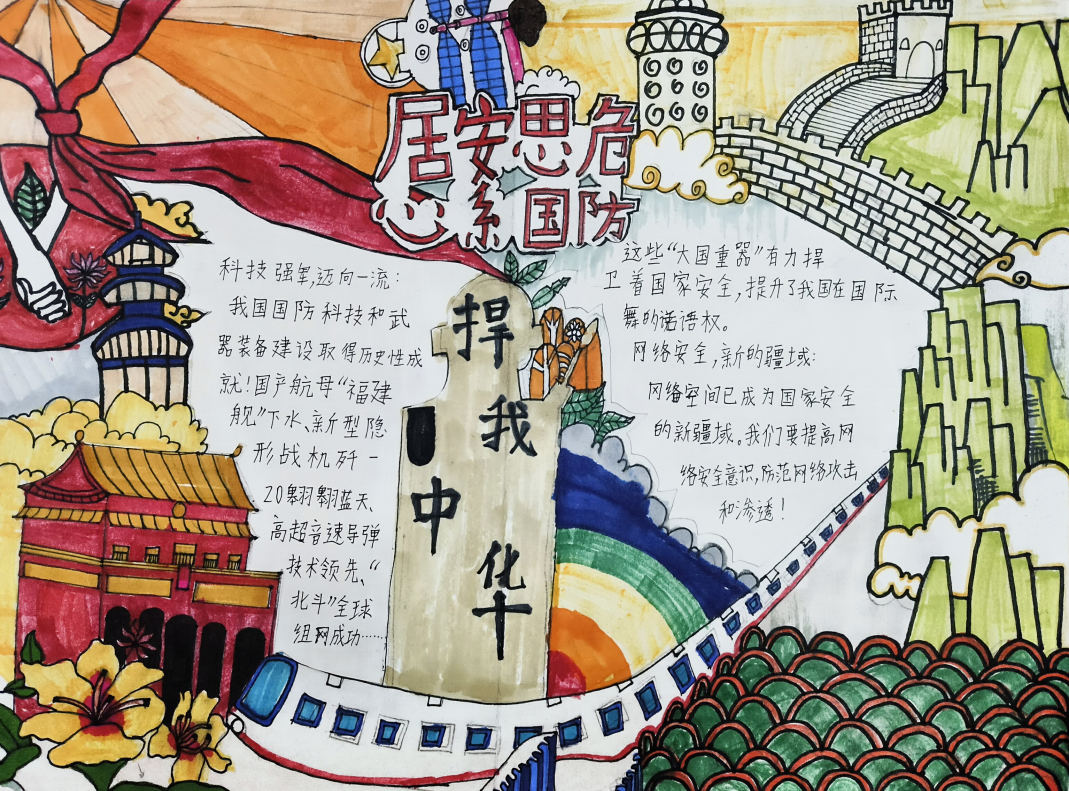 居安思危
心系国防
科技强军,迈向一流:
我国国防科技和武
器装备建设取得历史性成
就!国产航母“福建
舰”下水、新型隐
形战机歼-
20翱翔蓝天、
高超音速导弹
技术领先、“
北斗”全球
组网成功……
捍
我
中
华
这些“大国重器”有力捍
卫着国家安全,提升了我国在国际
舞的话语权。
网络安全,新的疆域:
网络空间已成为国家安全
的新疆域。我们要提高网
络安全意识,防范网络攻击
和渗透!